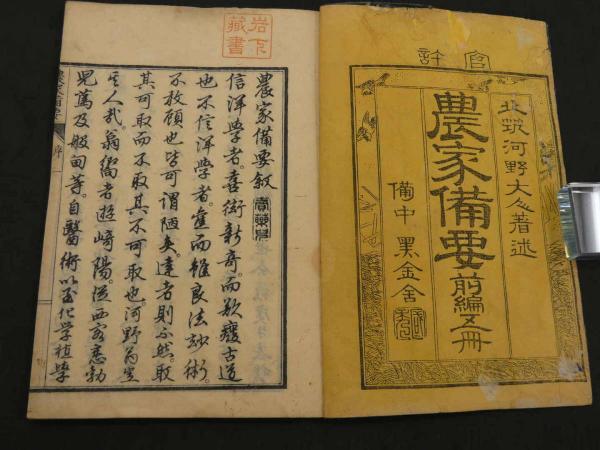 官許
北筑河野大人著述
農家備要前編五冊
備中 黒金舎
岩下藏書
農家備要叙
信洋學者喜衒新奇而欺癈古道
也不信洋學者雖良法妙術
不放顧也皆可謂陋矣達者則不然取
其可取而不取其不可取也河野翁
其人哉翁嘗者遊崎陽從西客悉勃
児篤及般甸等自醫術以至化学植學